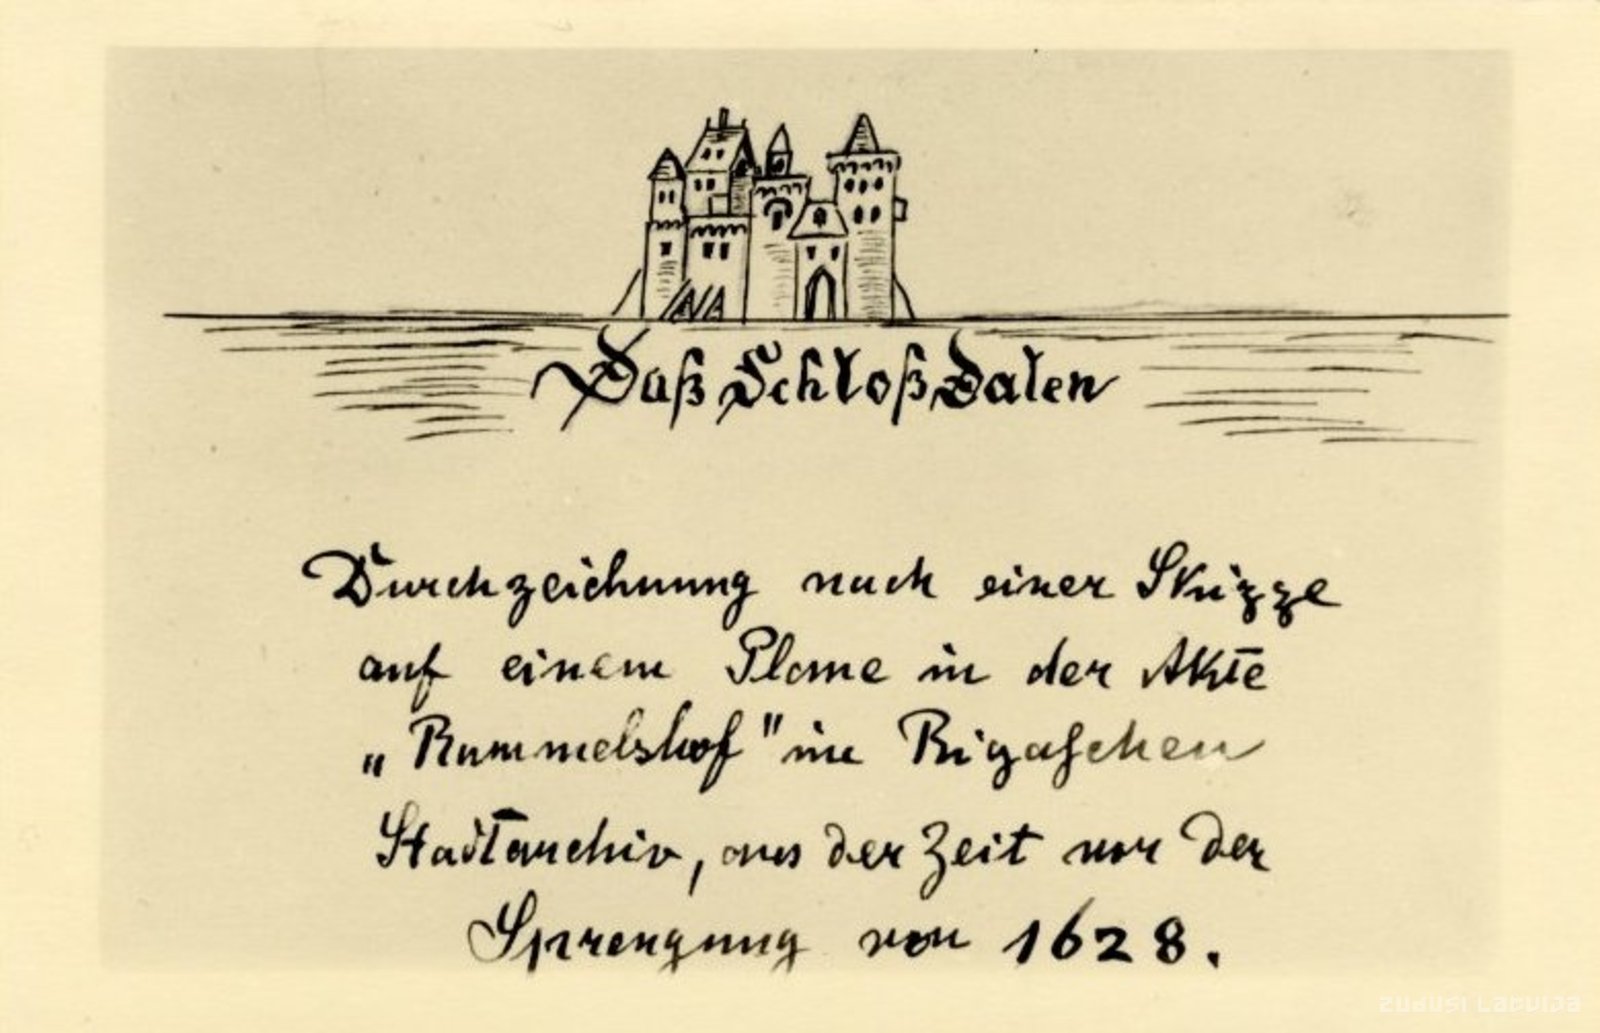 Daß Schloß Dalen
Durchzeichnung nach einer Skizze
auf einem Plane in der Akte
„Rummelshof" im Rigaschen
Stadtarchiv, aus der Zeit vor der
Sprengung von 1628.
zudusi Latvija